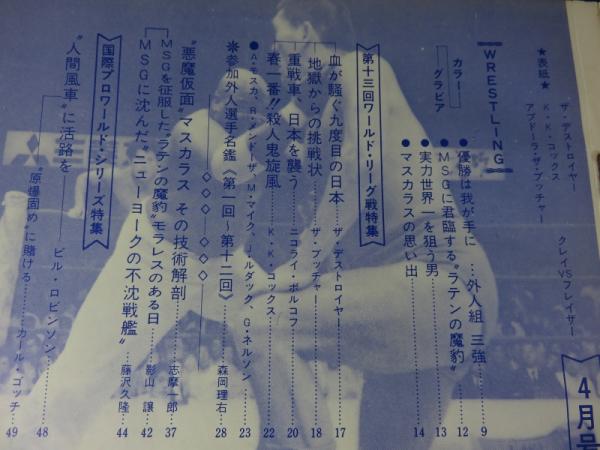 ★表紙★
ザ・デストロイヤー
K・K・コックス
アブドーラ・ザ・ブッチャー
クレイVSフレイザー
4月号
WRESTLING
カラー
グラビア
●優勝は我が手に……外人組 三強…9
●MSGに君臨する“ラテンの魔豹”…12
●実力世界一を狙う男…13
●マスカラスの思い出…14
第十三回ワールド・リーグ戦特集
血が騒ぐ九度目の日本…ザ・デストロイヤー…17
地獄からの挑戦状…ザ・ブッチャー…18
重戦車、日本を襲う…ニコライ・ボルコフ…20
春一番!!殺人鬼旋風…K・K・コックス…22
●A・モスカ、R・メンドーザ、M・マイク、J・ルダック、G・ネルソン…23
※参加外人選手名鑑《第一回～第十二回》…森岡理右…28
“悪魔仮面”マスカラス その技術解剖…志摩一郎…37
MSGを征服した“ラテンの魔豹”モラレスのある日…影山 譲…42
MSGに沈んだ“ニューヨークの不沈戦艦”…藤沢久隆…44
国際プロワールド・シリーズ特集
“人間風車”に活路を…ビル・ロビンソン…48
“原爆固め”に賭ける…カール・ゴッチ…49